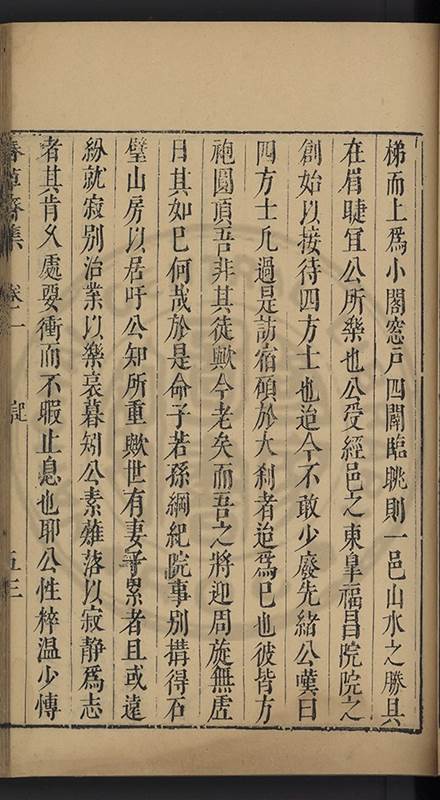 梯而上爲小閣窓戸四闢臨眺則一邑山水之勝具
在眉睫宜公所樂也公受經邑之東臯福昌院院之
創始以接待四方士也迨今不敢少廢先緒公嘆曰
四方士凡過是訪宿碩於大刹者迨爲已也彼皆方
袍圓頂吾非其徒歟今老矣而吾之將迎周旋無虚
日其如已何哉於是命子若孫綱紀院事别搆得石
璧山房以居吁公知所重歟世有妻子累者且或遠
紛就寂别治業以樂衰暮矧公素離落以寂靜爲志
者其肯久處要衝而不暇止息也耶公性粹温少慱
春草齋集 卷一 記 五三